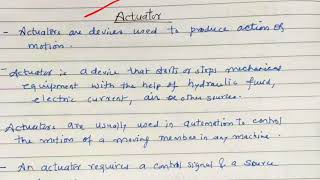 Actuator
- Actuators are devices used to produce action or
motion.
- Actuator is a device that starts or stops mechanical
equipment with the help of hydraulic fluid,
electric current, air or other sources.
- Actuators are usually used in automation to control
the motion of a moving member in any machine.
- An actuator requires a control signal & a source